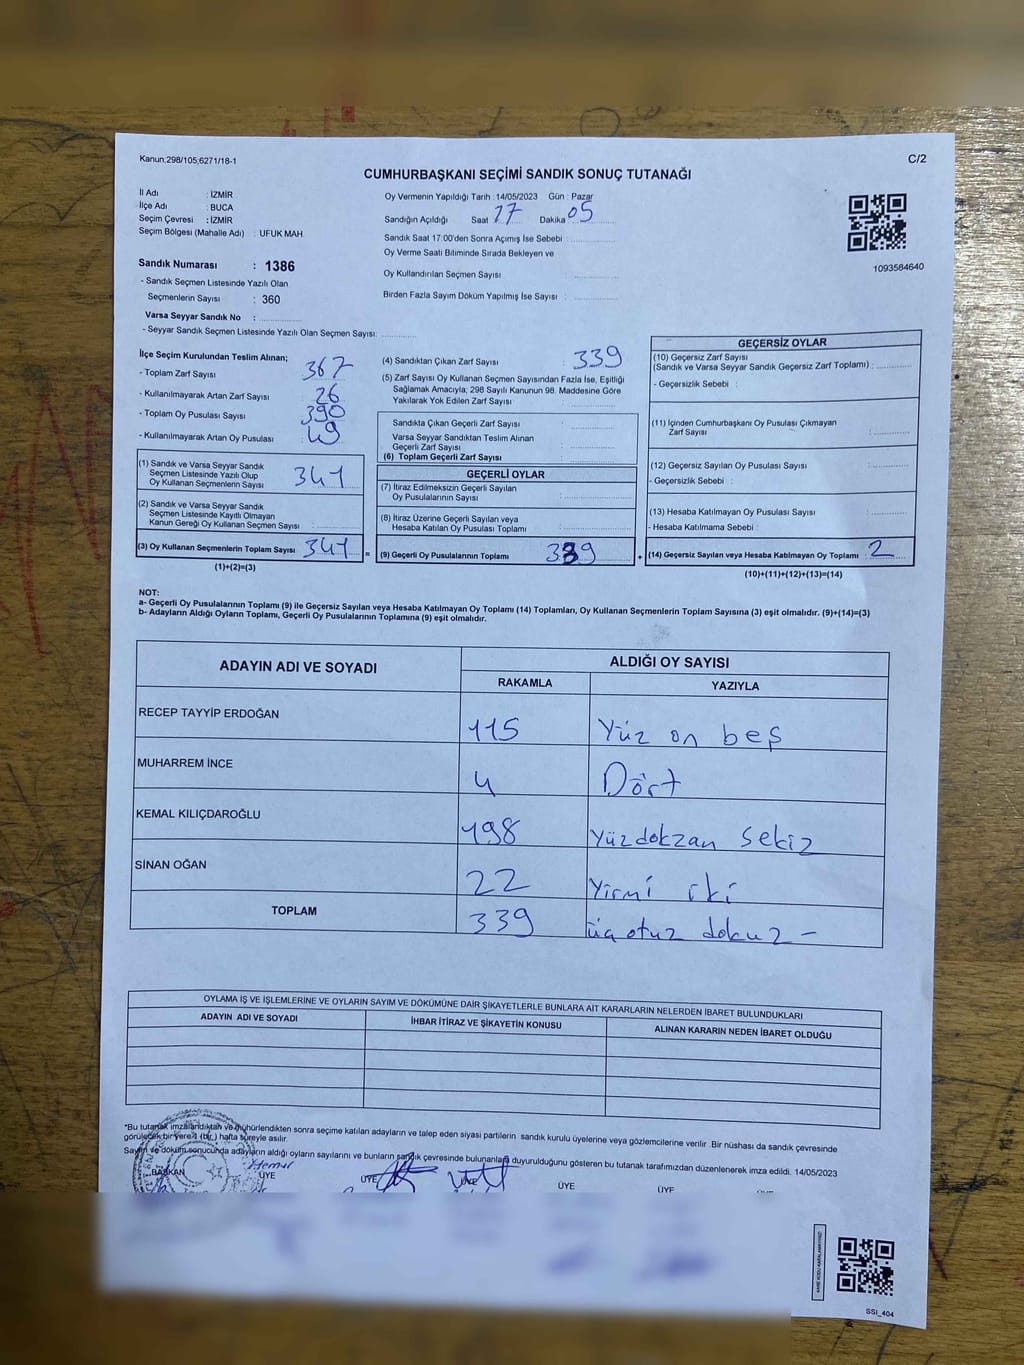 Kanun,298/105,6271/18-1
C/2
CUMHURBAŞKANI SEÇİMİ SANDIK SONUÇ TUTANAĞI
İl Adı : İZMİR
İlçe Adı : BUCA
Seçim Çevresi : İZMİR
Seçim Bölgesi (Mahalle Adı) : UFUK MAH.
Sandık Numarası : 1386
- Sandık Seçmen Listesinde Yazılı Olan
Seçmenlerin Sayısı : 360
Varsa Seyyar Sandık No :
- Seyyar Sandık Seçmen Listesinde Yazılı Olan Seçmen Sayısı:
Oy Vermenin Yapıldığı Tarih : 14/05/2023 Gün : Pazar
Sandığın Açıldığı Saat 17 Dakika 05
Sandık Saat 17:00'den Sonra Açımış İse Sebebi :
Oy Verme Saati Bitiminde Sırada Bekleyen ve
Oy Kullandırılan Seçmen Sayısı :
Birden Fazla Sayım Döküm Yapılmış İse Sayısı :
1093584640
İlçe Seçim Kurulundan Teslim Alınan;
- Toplam Zarf Sayısı : 367
- Kullanılmayarak Artan Zarf Sayısı : 26
- Toplam Oy Pusulası Sayısı : 390
- Kullanılmayarak Artan Oy Pusulası : 49
(1) Sandık ve Varsa Seyyar Sandık
Seçmen Listesinde Yazılı Olup
Oy Kullanan Seçmenlerin Sayısı : 341
(2) Sandık ve Varsa Seyyar Sandık
Seçmen Listesinde Kayıtlı Olmayan
Kanun Gereği Oy Kullanan Seçmen Sayısı :
(3) Oy Kullanan Seçmenlerin Toplam Sayısı : 341 =
(1)+(2)=(3)
(4) Sandıktan Çıkan Zarf Sayısı : 339
(5) Zarf Sayısı Oy Kullanan Seçmen Sayısından Fazla İse, Eşitliği
Sağlamak Amacıyla; 298 Sayılı Kanunun 98. Maddesine Göre
Yakılarak Yok Edilen Zarf Sayısı :
Sandıkta Çıkan Geçerli Zarf Sayısı :
Varsa Seyyar Sandıktan Teslim Alınan
Geçerli Zarf Sayısı :
(6) Toplam Geçerli Zarf Sayısı :
GEÇERLİ OYLAR
(7) İtiraz Edilmeksizin Geçerli Sayılan
Oy Pusulalarının Sayısı :
(8) İtiraz Üzerine Geçerli Sayılan veya
Hesaba Katılan Oy Pusulası Toplamı :
(9) Geçerli Oy Pusulalarının Toplamı : 339 +
GEÇERSİZ OYLAR
(10) Geçersiz Zarf Sayısı
(Sandık ve Varsa Seyyar Sandık Geçersiz Zarf Toplamı) :
- Geçersizlik Sebebi :
(11) İçinden Cumhurbaşkanı Oy Pusulası Çıkmayan
Zarf Sayısı :
(12) Geçersiz Sayılan Oy Pusulası Sayısı :
- Geçersizlik Sebebi :
(13) Hesaba Katılmayan Oy Pusulası Sayısı :
- Hesaba Katılmama Sebebi :
(14) Geçersiz Sayılan veya Hesaba Katılmayan Oy Toplamı : 2
(10)+(11)+(12)+(13)=(14)
NOT:
a- Geçerli Oy Pusulalarının Toplamı (9) ile Geçersiz Sayılan veya Hesaba Katılmayan Oy Toplamı (14) Toplamları, Oy Kullanan Seçmenlerin Toplam Sayısına (3) eşit olmalıdır. (9)+(14)=(3)
b- Adayların Aldığı Oyların Toplamı, Geçerli Oy Pusulalarının Toplamına (9) eşit olmalıdır.
ADAYIN ADI VE SOYADI ALDIĞI OY SAYISI
RAKAMLA YAZIYLA
RECEP TAYYİP ERDOĞAN 115 Yüz on beş
MUHARREM İNCE 4 Dört
KEMAL KILIÇDAROĞLU 198 Yüzdokzan sekiz
SİNAN OĞAN 22 Yirmi iki
TOPLAM 339 üç otuz dokuz –
OYLAMA İŞ VE İŞLEMLERİNE VE OYLARIN SAYIM VE DÖKÜMÜNE DAİR ŞİKAYETLERLE BUNLARA AİT KARARLARIN NELERDEN İBARET BULUNDUKLARI
ADAYIN ADI VE SOYADI İHBAR İTİRAZ VE ŞİKAYETİN KONUSU ALINAN KARARIN NEDEN İBARET OLDUĞU
*Bu tutanak imzalandıktan ve mühürlendikten sonra seçime katılan adayların ve talep eden siyasi partilerin sandık kurulu üyelerine veya gözlemcilerine verilir. Bir nüshası da sandık çevresinde
görülecek bir yere 1 (bir,) hafta süreyle asılır.
Sayım ve döküm sonucunda adayların aldığı oyların sayılarını ve bunların sandık çevresinde bulunanlara duyurulduğunu gösteren bu tutanak tarafımızdan düzenlenerek imza edildi. 14/05/2023
BAŞKAN ÜYE ÜYE ÜYE ÜYE ÜYE
SSI_404